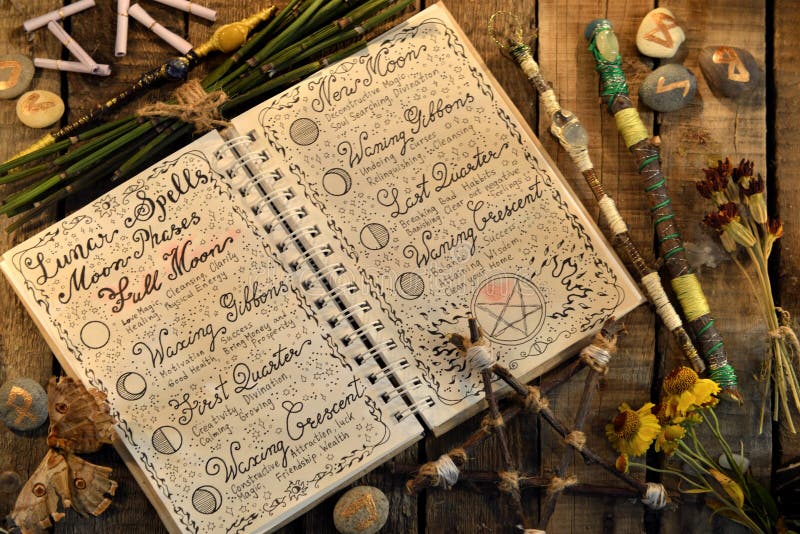 Lunar Spells
Moon Phases
Full Moon
Love Magic, Cleansing, Clarity
Healing, Physical Energy
Waxing Gibbons
Motivation, Success
Good Health, Bring Money
Prosperity
First Quarter
Creativity, Divination,
Calming, Growing,
Waxing Crescent
Constructive Attraction, Luck
Magic, Friendship, Wealth
New Moon
Deconstructive Magic,
Soul Searching, Divination
Waning Gibbons
Undoing Curses
Relinquishing, Cleansing
Last Quarter
Breaking Bad Habits
Banishing, Clear out negative
feelings
Waning Crescent
Balance, Success,
Attaining Wisdom,
Clean your Home